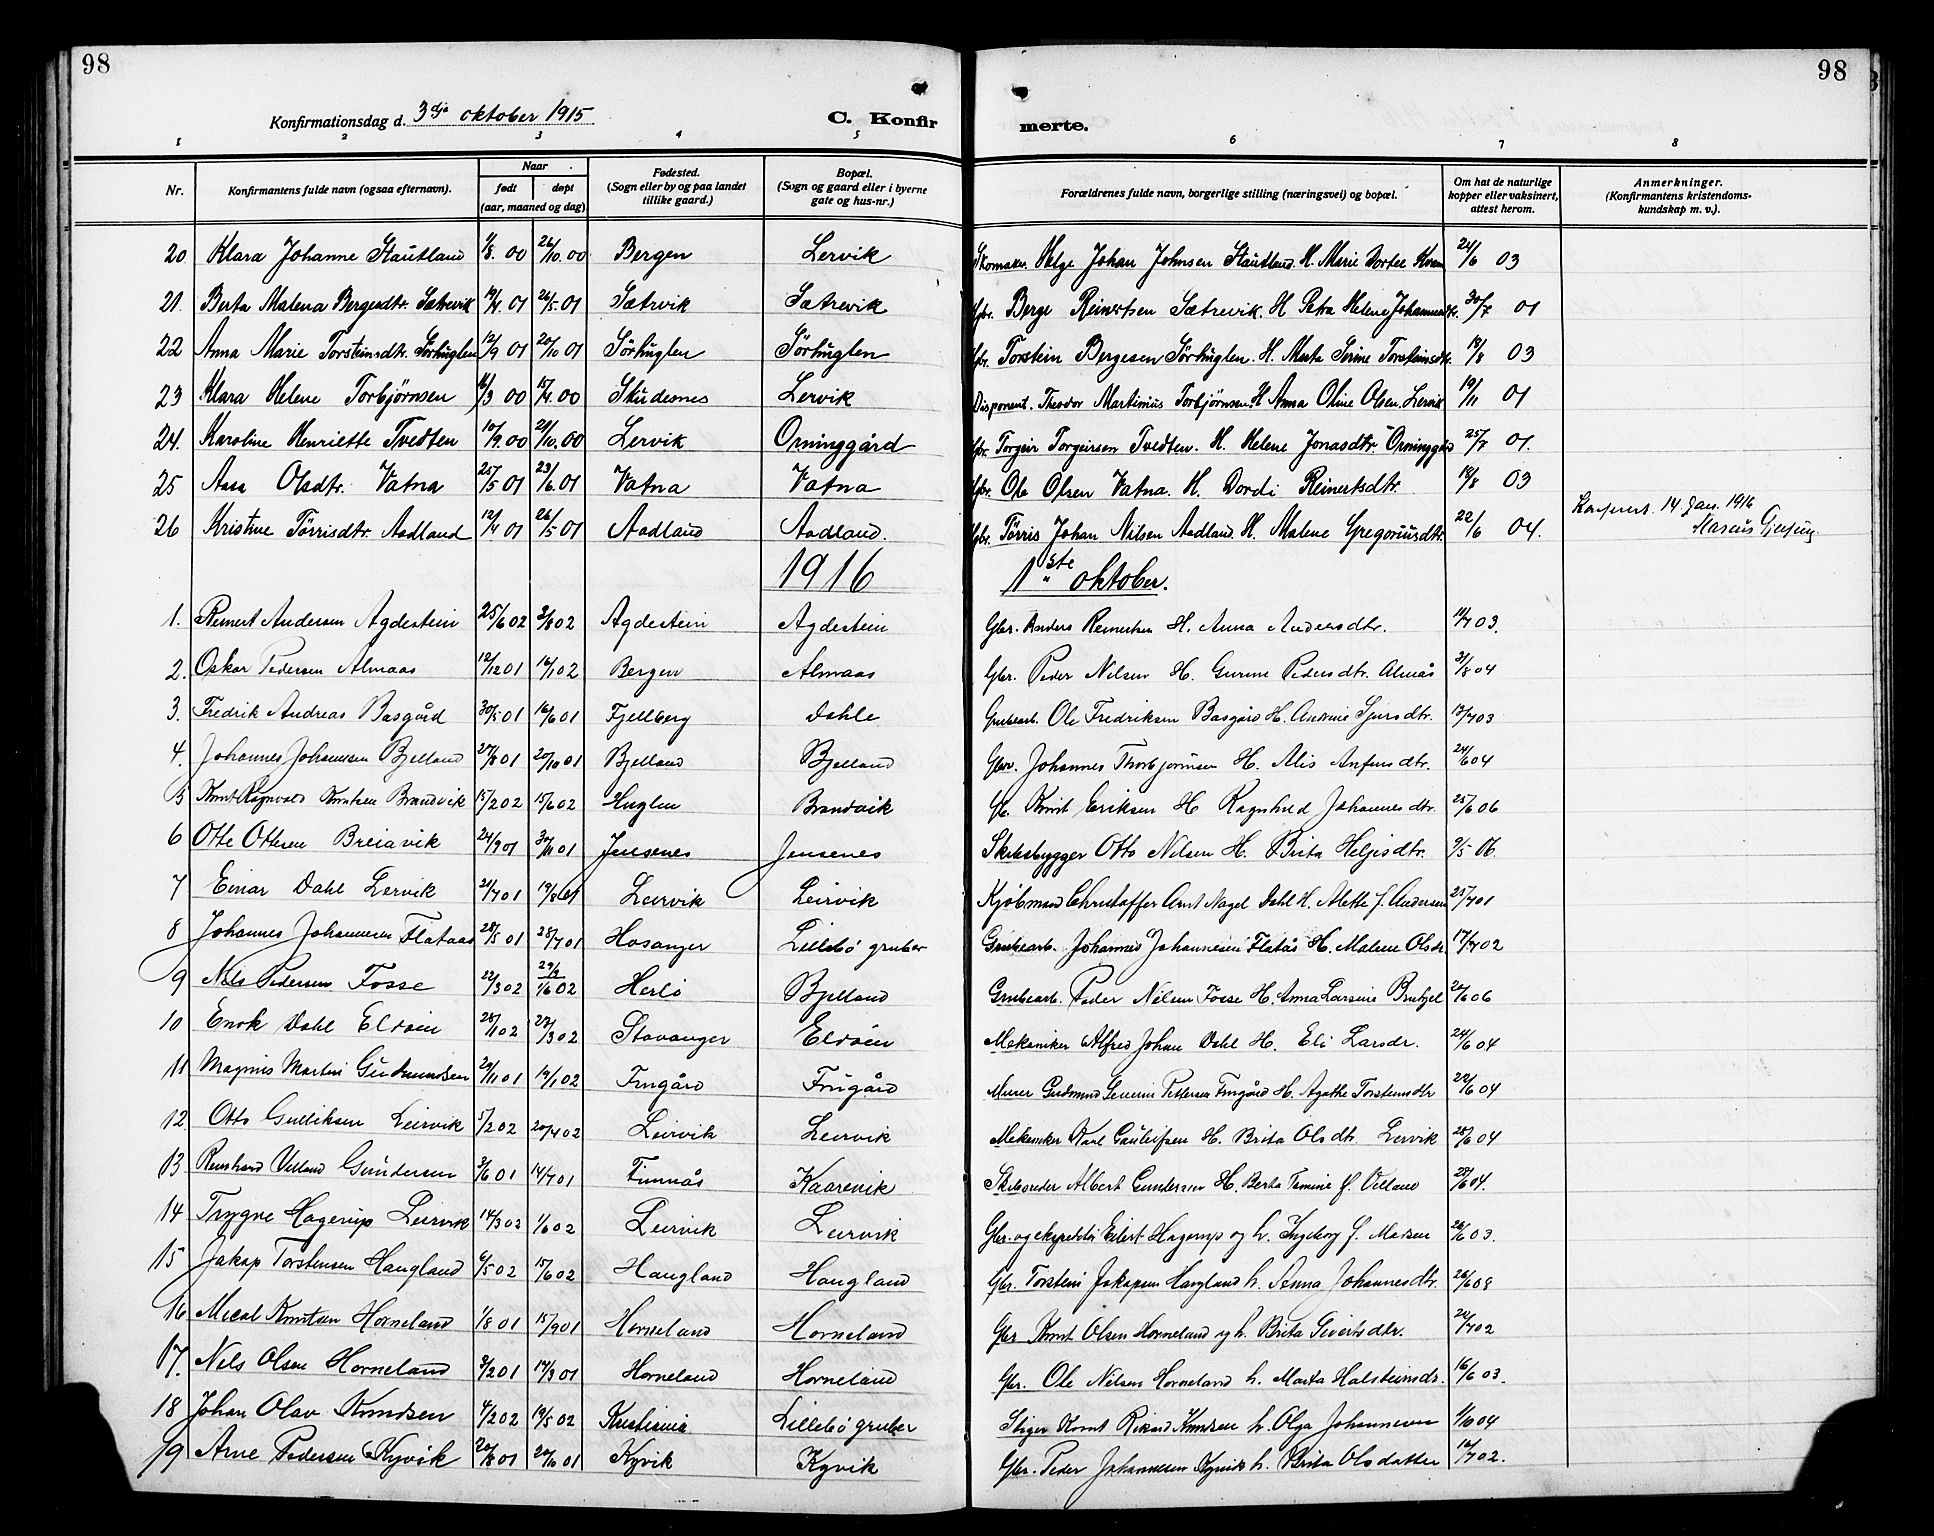 98
98
Konfirmationsdag d. 3dje oktober 1915
C. Konfir
merte.
1 2 3 4 5 6 7 8
Nr.
Konfirmantens fulde navn (ogsaa efternavn).
Naar
født
døpt
(aar, maaned og dag)
Fødested.
(Sogn eller by og paa landet
tillike gaard.)
Bopæl.
(Sogn og gaard eller i byerne
gate og hus-nr.)
Forældrenes fulde navn, borgerlige stilling (næringsvei) og bopæl.
Om hat de naturlige
kopper eller vaksinert,
attest herom.
Anmerkninger.
(Konfirmantens kristendoms-
kundskap m. v.).
20 Klara Johanne Stautland 1/8 00 26/10 00 Bergen Lervik Skomaker Helge Johan Johnsen Stautland. H. Marie Dortee 24/6 03
21. Berta Malena Bergesdtr. Sætrevik 19/4 01 26/5 01 Sætrvik Sætrevik Gbr. Berge Reinertsen Sætrevik. H Petra Helene Johannesdtr. 30/7 01
22 Anna Marie Torsteinsdtr. Sørhuglen 12/9 01 20/10 01 Sørhuglen Sørhuglen Gbr. Torstein Bergesen Sørhuglen. H. Marta Serine Torsteinsdtr. 18/8 03
23 Klara Helene Torbjørnsen 16/3 00 15/4 00 Skudesnes Lervik Disponent. Theodor Martinius Torbjørnsen H Anna Oline Olsen, Lervik 19/11 01
24. Karoline Henriette Tvedten 10/9 00 21/10 00 Lervik Orninggård Gbr. Torgeir Torgeirsen Tvedten. H. Helene Jonasdtr. Orninggård 25/7 01.
25 Aasa Olsdtr. Vatna 25/5 01 23/6 01 Vatna Vatna Gbr. Ole Olsen Vatna. H. Dordi Reinertsdtr. 18/8 03
26 Kristine Tørrisdtr. Aadland 12/4 01 26/5 01 Aadland Aadland. Gbr. Tørris Johan Nilsen Aadland. H. Malene Gregoriusdtr. 22/6 04. 14. Jan. 1916
Marius
1916 1ste oktober.
1. Reinert Andersen Agdestein 25/6 02 3/8 02 Agdestein Agdestein Gbr. Anders Reinertsen H. Anna Andersdtr. 14/7 03.
2. Oskar Pedersen Almaas 12/12 01 16/1 02 Bergen Almaas Gbr. Peder Nilsen H. Gurine Pedersdtr. Almås 31/8 04
3. Fredrik Andreas Basgård 30/5 01 16/6 01 Fjellberg Dahle Grubearb. Ole Fredriksen Basgård H. Andrine Sjursdtr. 13/7 03
4. Johannes Johannessen Bjelland 27/8 01 20/10 01 Bjelland Bjelland Gbr. Johannes Thorbjørnsen H. Alis Anfinsdtr. 24/6 04
5 Knut Ragnvald Knutsen Brandvik 15/2 02 15/6 02 Huglen Brandvik Gbr. Knut Eriksen H Ragnhild Johannesdtr. 25/6 06
6 Otto Ottesen Breiavik 24/9 01 30/11 01 Jensenes Jensenes Skibsbygger Otto Nilsen H. Brita Heljesdtr. 9/5 06.
7 Einar Dahl Lervik 21/7 01 19/8 01 Leirvik Leirvik Kjøbmand Christoffer Arnt Nagel Dahl H. Alette f. Andersen 25/7 01
8 Johannes Johannesen Flataas 28/5 01 28/7 01 Hosanger Lillebö gruber Grubearb. Johannes Johannesen Flatås H. Malene Olsdr. 17/7 02
9 Nils Pedersen Fosse 22/3 02 29/3 1/6 02 Herlö Bjelland Grubearb. Peder Nilsen Fosse H. Anna Larsine 24/6 06
10 Enok Dahl Eldøen 28/1 02 27/3 02 Stavanger Eldöen Mekaniker Alfred Johan Dahl H. Eli Larsdr. 24/6 04
11 Magnus Martin Gudmundsen 29/11 01 19/1 02 Frugård Frugård Murer Gudmund Severin Pettersen Frugård H. Agathe Torsteinsdtr 22/6 04
12 Otto Gulliksen Leirvik 5/2 02 20/4 02 Leirvik Leirvik Mekaniker Karl Gulliksen H. Brita Olsdtr. Lervik 28/6 04
13 Reinhard Velland Gundersen 3/6 01 14/7 01 Finnås Kaarevik Skibsreder Albert Gundersen H. Berta Tamine f. Velland 28/6 04.
14 Trygve Hagerup Leirvik 14/3 02 1/6 02 Leirvik Leirvik Gbr. og ekspeditör Eilert Hagerup og h. Ingeborg f. Madsen 26/6 03.
15 Jakop Torstensen Haugland 6/5 02 15/6 02 Haugland Haugland Gbr. Torstein Jakopsen Haugland h. Anna Johannesdtr. 26/6 08
16 Mical Knutsen Horneland 1/8 01 15/9 01 Horneland Horneland Gbr Knut Olsen Horneland og h. Brita Sivertsdtr. 20/7 02
17. Nels Olsen Horneland 3/2 01 17/3 01 Horneland Horneland Gbr. Ole Nilsen Horneland h. Marta Halsteinsdr. 16/6 03.
18 Johan Olav Knudsen 4/2 02 19/5 02 Kristiania Lillebö gruber Stiger Knut Rikard Knudsen h. Olga Johannesen 1/10 04
19 Arne Pedersen Kyvik 20/8 01 20/10 01 Kyvik Kyvik Gbr. Peder Johannesen Kyvik h. Brita Olsdatter 16/7 02.